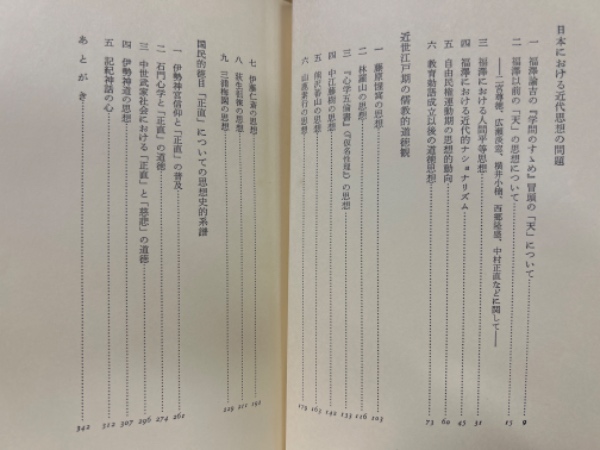 日本における近代思想の問題
一 福澤諭吉の『学問のすゝめ』冒頭の「天」について 9
二 福澤以前の「天」の思想について 15
――二宮尊徳、広瀬淡窓、横井小楠、西郷隆盛、中村正直などに関して――
三 福澤における人間平等思想 31
四 福澤における近代的ナショナリズム 45
五 自由民権運動期の思想的動向 60
六 教育勅語成立以後の道徳思想 73
近世江戸期の儒教的道徳観
一 藤原惺窩の思想 103
二 林羅山の思想 116
三 『心学五倫書』(『仮名性理』)の思想 133
四 中江藤樹の思想 142
五 熊沢蕃山の思想 163
六 山鹿素行の思想 179
七 伊藤仁斎の思想 191
八 荻生徂徠の思想 211
九 三浦梅園の思想 229
国民的徳目「正直」についての思想史的系譜
一 伊勢神宮信仰と「正直」の普及 261
二 石門心学と「正直」の道徳 274
三 中世武家社会における「正直」と「慈悲」の道徳 296
四 伊勢神道の思想 307
五 記紀神話の心 312
あとがき 342